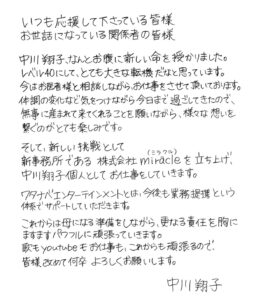 いつも応援して下さっている皆様
お世話になっている関係者の皆様
中川翔子、なんとお腹に新しい命を授かりました。
レベル40にして、とても大きな転機だなと思っています。
今はお医者様と相談しながらお仕事をさせて頂いております。
体調の変化など気をつけながら今日まで過ごしてきたので、
無事に産まれて来てくれることを願いながら、様々な想いを
繋ぐのがとても楽しみです。
そして、新しい挑戦として
新事務所である 株式会社 miracle(ミラクル)を立ち上げ、
中川翔子個人としてお仕事をしていきます。
ワタナベエンターテインメントとは、今後も業務提携という
体制でサポートしていただきます。
これからは母になる準備をしながら、更なる責任を胸に
ますますパワフルに頑張っていきます。
歌もyoutubeもお仕事も、これからも頑張るので、
皆様改めて何卒よろしくお願いします。
中川翔子